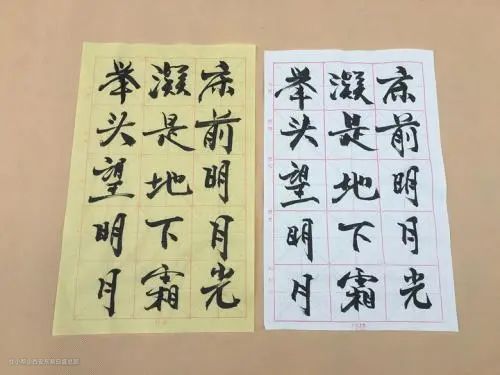 床前明月光
凝是地下霜
举头望明月
床前明月光
凝是地下霜
举头望明月